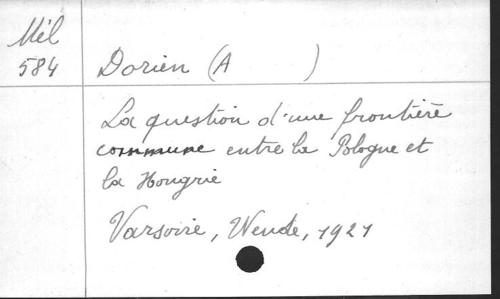 Mél
584
Dorien (A )
La question d'une frontière
commune entre la Pologne et
la Hongrie
Varsovie, Wende, 1921